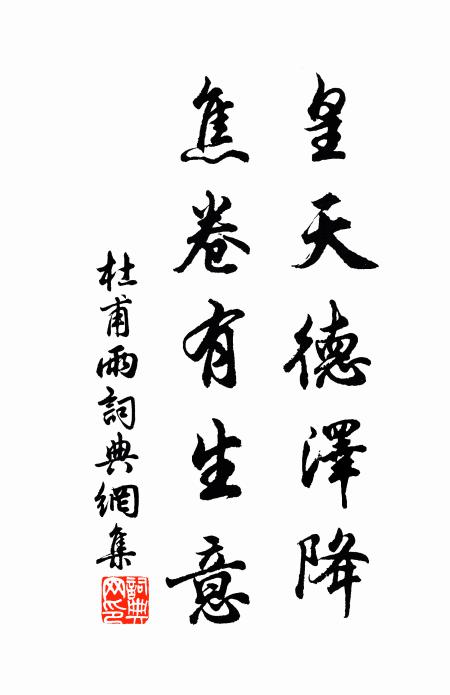 皇天德澤降
焦卷有生意
杜甫雨詞典網集
詞典网印